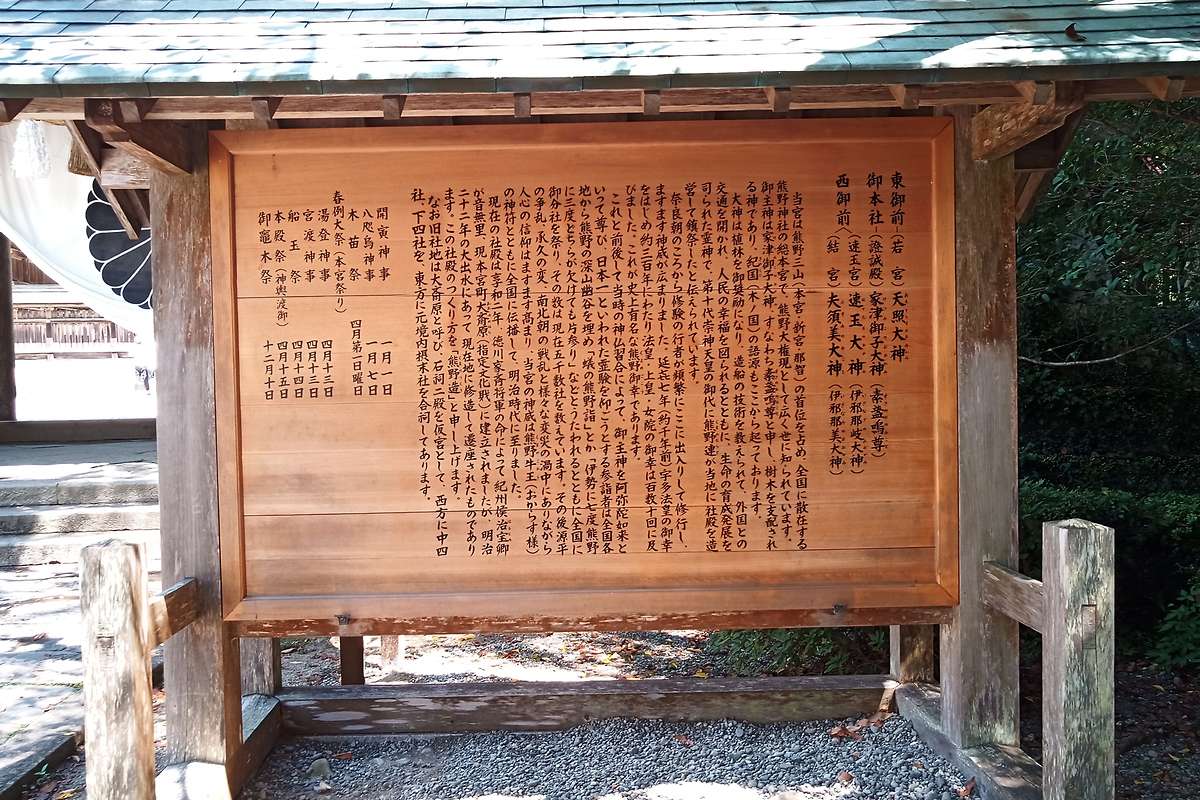 東御前―(若宮)天照大神
御本社―(證誠殿)家津御子大神(素盞嗚尊)
(速玉宮)速玉大神(伊邪那岐大神)
西御前〈
(結宮)夫須美大神(伊邪那美大神)
当宮は熊野三山(本宮・新宮・那智)の首位を占め、全国に散在する
熊野神社の総本宮で、熊野大権現として広く世に知られています。
御主神は家津御子大神、すなわち素盞嗚尊と申し、樹木を支配され
る神であり、紀国(木ノ国)の語源もここから起っております。
大神は植林を御奨励になり、造船の技術を教えられて、外国との
交通を開かれ、人民の幸福を図られるとともに、生命の育成発展を
司られた霊神で、第十代崇神天皇の御代に熊野連が当地に社殿を造
営して鎮祭したと伝えられています。
奈良朝のころから修験の行者が頻繁にここに出入りして修行し、
ますます神威が広まりました。延喜七年(約千年前)宇多法皇の御幸
をはじめ約三百年にわたり法皇・上皇・女院の御幸は百数十回に及
びました。これが史上有名な熊野御幸であります。
これと前後して当時の神仏習合によって、御主神を阿弥陀如来と
いって尊び、日本一といわれた霊験を仰ごうとする参詣者は全国各
地から熊野の深山幽谷を埋め「蟻の熊野詣」とか「伊勢に七度熊野
に三度どちらが欠けても片参り」などとうたわれるとともに全国に
御分社を祭り、その数は現在五千数社を数えています。その後源平
の争乱、承久の変、南北朝の戦乱と様々な変災の渦中にありながら
人心の信仰はますます高まり、当宮の神威は熊野牛王(おからす様)
の神符とともに全国に伝播して、明治時代に至りました。
現在の社殿は享和二年、徳川家斉将軍の命によって紀州候治宝卿
が音無里、現本宮町大斎原(指定文化戝)に建立されましたが、明治
二十二年の大出水にあって現在地に修造して遷座されたものであり
ます。この社殿のつくり方を「熊野造」と申し上げます。
なお旧社地は大斎原と呼び、石祠二殿を仮宮として、西方に中四
社、下四社を、東方に元境内摂末社を合祠してあります。
開寅神事 一月一日
八咫烏神事 一月七日
木苗祭 四月第一日曜日
春例大祭(本宮祭り)
湯登神事 四月十三日
宮渡神事 四月十三日
船玉祭 四月十四日
本殿祭(神輿渡御) 四月十五日
御竈木祭 十二月十日